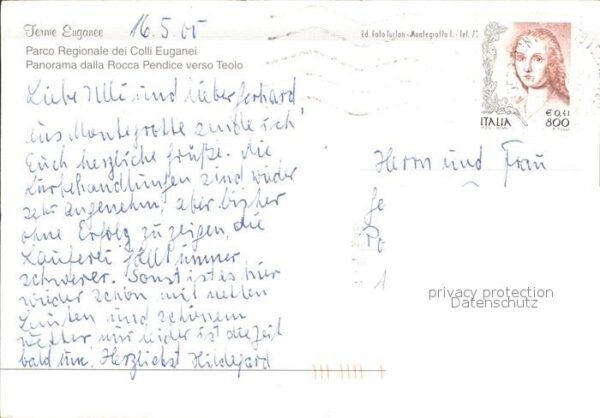 Terme Euganee
16.5.00
Parco Regionale dei Colli Euganei
Panorama dalla Rocca Pendice verso Teolo
Ed. Foto Turlon - Montegrotto T. - Tel.
€ 0,41
ITALIA 800
Liebe Illi und lieber Gerhard
aus Montegrotto sende ich
Euch herzliche Grüße. Die
Kurbehandlungen sind wieder
sehr angenehm, aber bisher
ohne Erfolg zu zeigen, die
Lauferei fällt immer
schwerer. Sonst ist es hier
wieder schön mit netten
Leuten und schönem
Wetter, nur leider ist die Zeit
bald um. Herzlichst Hildegard
Herrn und Frau
Ge
Po
1
privacy protection
Datenschutz